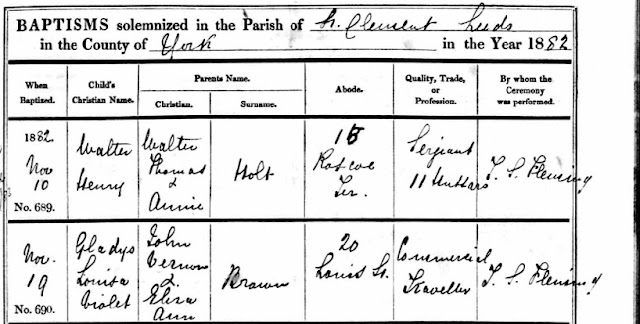 BAPTISMS solemnized in the Parish of St. Clement Leeds
in the County of York in the Year 1882
When Baptized. Child's Christian Name. Parents Name. Abode. Quality, Trade, or Profession. By whom the Ceremony was performed.
Christian. Surname.
1882
Nov
10
No. 689.
Walter
Henry
Walter
Thomas
&
Annie
Holt
18
Roscoe
Ter.
Sergiant
11 Hussars
T. S. Fleming
Nov.
19
No. 690.
Gladys
Louisa
Violet
John
Vernon
&
Eliza
Ann
Brown
20
Louis St.
Commercial
Traveller
T. S. Fleming